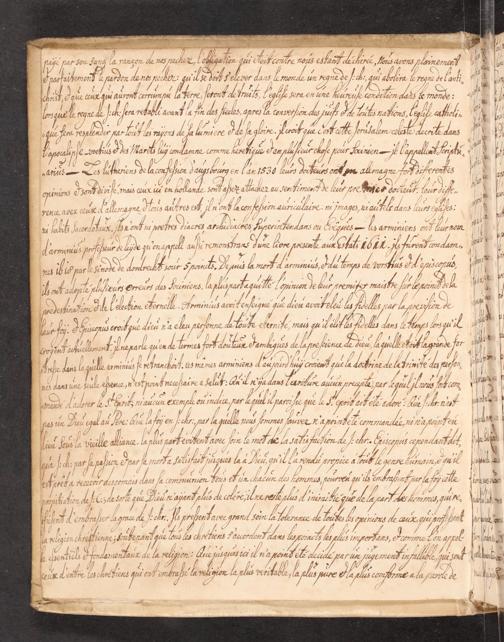 payé par son sang la rançon de nos pechez, l'obligation qui etoit contre nous estant dechirée, Nous avons pleinement
et parfaitement le pardon de nos pechez: qu'il se doit s'elever dans le monde un regne de J: chr, qui abolira le regne de l'anti-
christ, et que ceux qui auront corrumpu la terre, seront detruits. l'eglise sera en une heureuse condition dans le monde:
lorsque le regne de J: chr: sera retabli avant la fin des siecles, apres la conversion des juifs et de toutes nations, l'eglise catholi-
que sera resplendir par tout les rayons de sa lumiere et de sa gloire. Seroit que c'est cette Jerusalem celeste decrite dans
l'apocalipse
Les lutheriens de la confession d'augsbourg en l'an 1530 leurs docteurs ont en allemagne fort differentes
opinions et sont divisé, mais ceux cy en hollande sont assez attachez au sentiment de leur premier docteur. leur diffe-
rence avec ceux d'allemagne et tous autres est, il n'ont la confession auriculaire, ni images, ni autels dans leurs eglises:
ni habits sacerdotaux, ils n'ont ni prestres diacres archidiacres Superintendans ou Evêques — les arminiens ont leur nom
d'arminius professeur de leyde qu'on appell aussi remonstrans d'une livre presenté aux etats 1611. Ils furent condam-
nés par le sinode de dordrecht
ils ont adopté plusieurs erreurs des Sociniens, la plus part a quitté l'opinion de leur premier maistre sur le point de la
predestination et de l'election eternelle. Arminius avoit enseigné que dieu avoit eleu les fidelles par la prevision de
leur foy. et Episcopius croit que dieu n'a eleu personne de toute eternité, mais qu'il elit les fidelles dans le temps lorsqu'il
croyent actuellement il ne parle qu'en de termes fort douteux et ambigues de la prescience de Dieu, laquelle etoit la grande for-
teresse dans la quelle arminius se retranchoit. ces mêmes arminiens d'aujourd'huy croyent que la doctrine de la trinité des person-
nes dans une seule essence, n'est point necessaire a salut: qu'il n'y a dans l'ecriture aucun precepte par lequel il nous soit com-
mandé d'adorer le St Esprit, ni aucun exemple ou indice, par lequel il paroisse que le St esprit ait eté adoré: que J: chr: n'est
pas un Dieu egal au Pere: que la foy en J: chr: par la quelle nous sommes sauvez, n'a point eté commandée, ni n'a point eu
lieu sous la vieille alliance. la plus part evitent avec soin le mot de la satisfaction de J: chr: Episcopius cependant dit,
que J: chr: par sa passion et par la mort a satisfait jusques la à Dieu, qu'il l'a rendu propice a tout le genre humain, et qu'il
est prêt a recevoir desormais dans sa communion tous et un chacun des hommes, pourveu qu'ils embrassent par la foy cette
propitiation de J: C: de sorte que, Dieu n'ayant plus de colere, il ne reste plus d'inimitié que de la part des hommes, qui re-
fusent d'embrasser la grace de J: chr. Ils pressent avec grand soin la tolerance de toutes les opinions de ceux qui professent
la religion chrestienne; soutenant que tous les chretiens s'accordent dans les points les plus importans, et comme l'on appel-
le essentiels et fondamentaux de la religion: que jusques icy il n'a point eté decidé par un jugement infaillible, qui sont
ceux d'entre les chrêtiens qui ont embrassé la religion la plus veritable, la plus pure et la plus conforme a la parole de